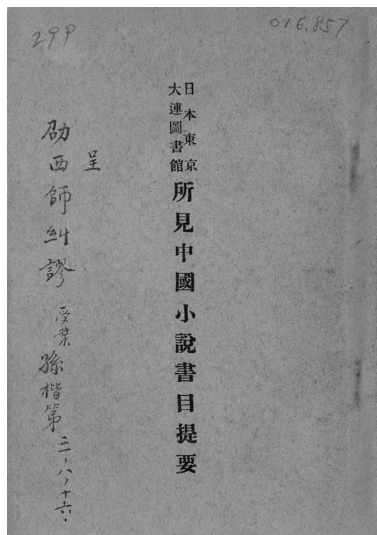 016.857
日本東京
大連圖書館
所見中國小說書目提要
呈
劭西師糾謬 受業孫楷第 二一,八,十六.